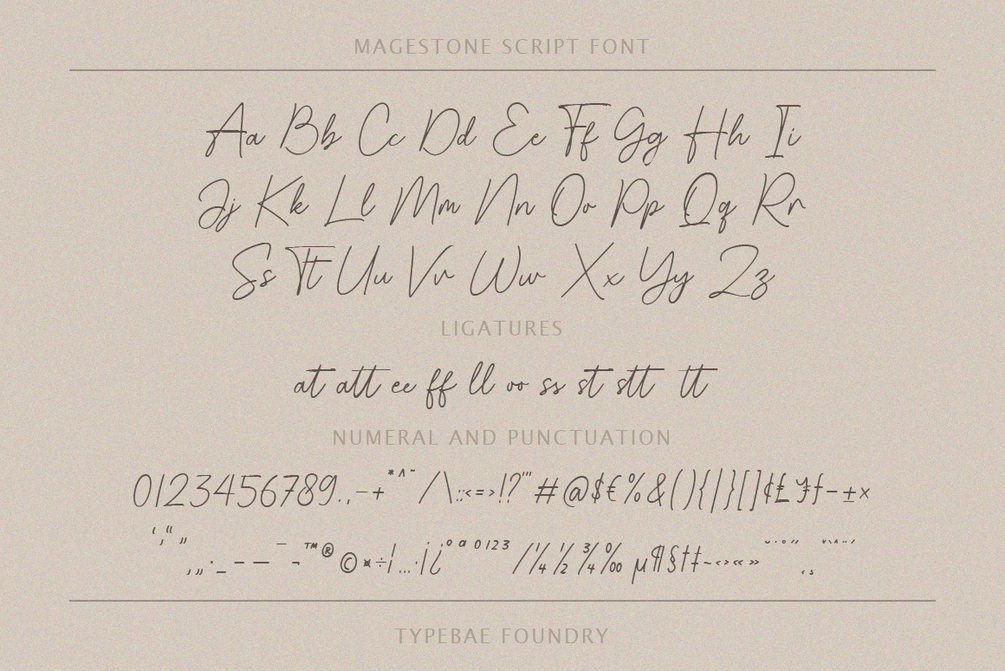 MAGESTONE SCRIPT FONT
Aa Bb Cc Dd Ee Ff Gg Hh Ii
Jj Kk Ll Mm Nn Oo Pp Qq Rr
Ss Tt Uu Vv Ww Xx Yy Zz
LIGATURES
at att ee ff ll oo ss st stt tt
NUMERAL AND PUNCTUATION
0123456789.,-+*^~/\;:<=>!?'"#@$€%&(){|}[]¢£¥ƒ−±×
‘,“ „ ‚„·_–—¯¬™®©¤÷¦…·¡¿ºª0123/¼½¾‰µ¶§†‡~‹›«»
TYPEBAE FOUNDRY